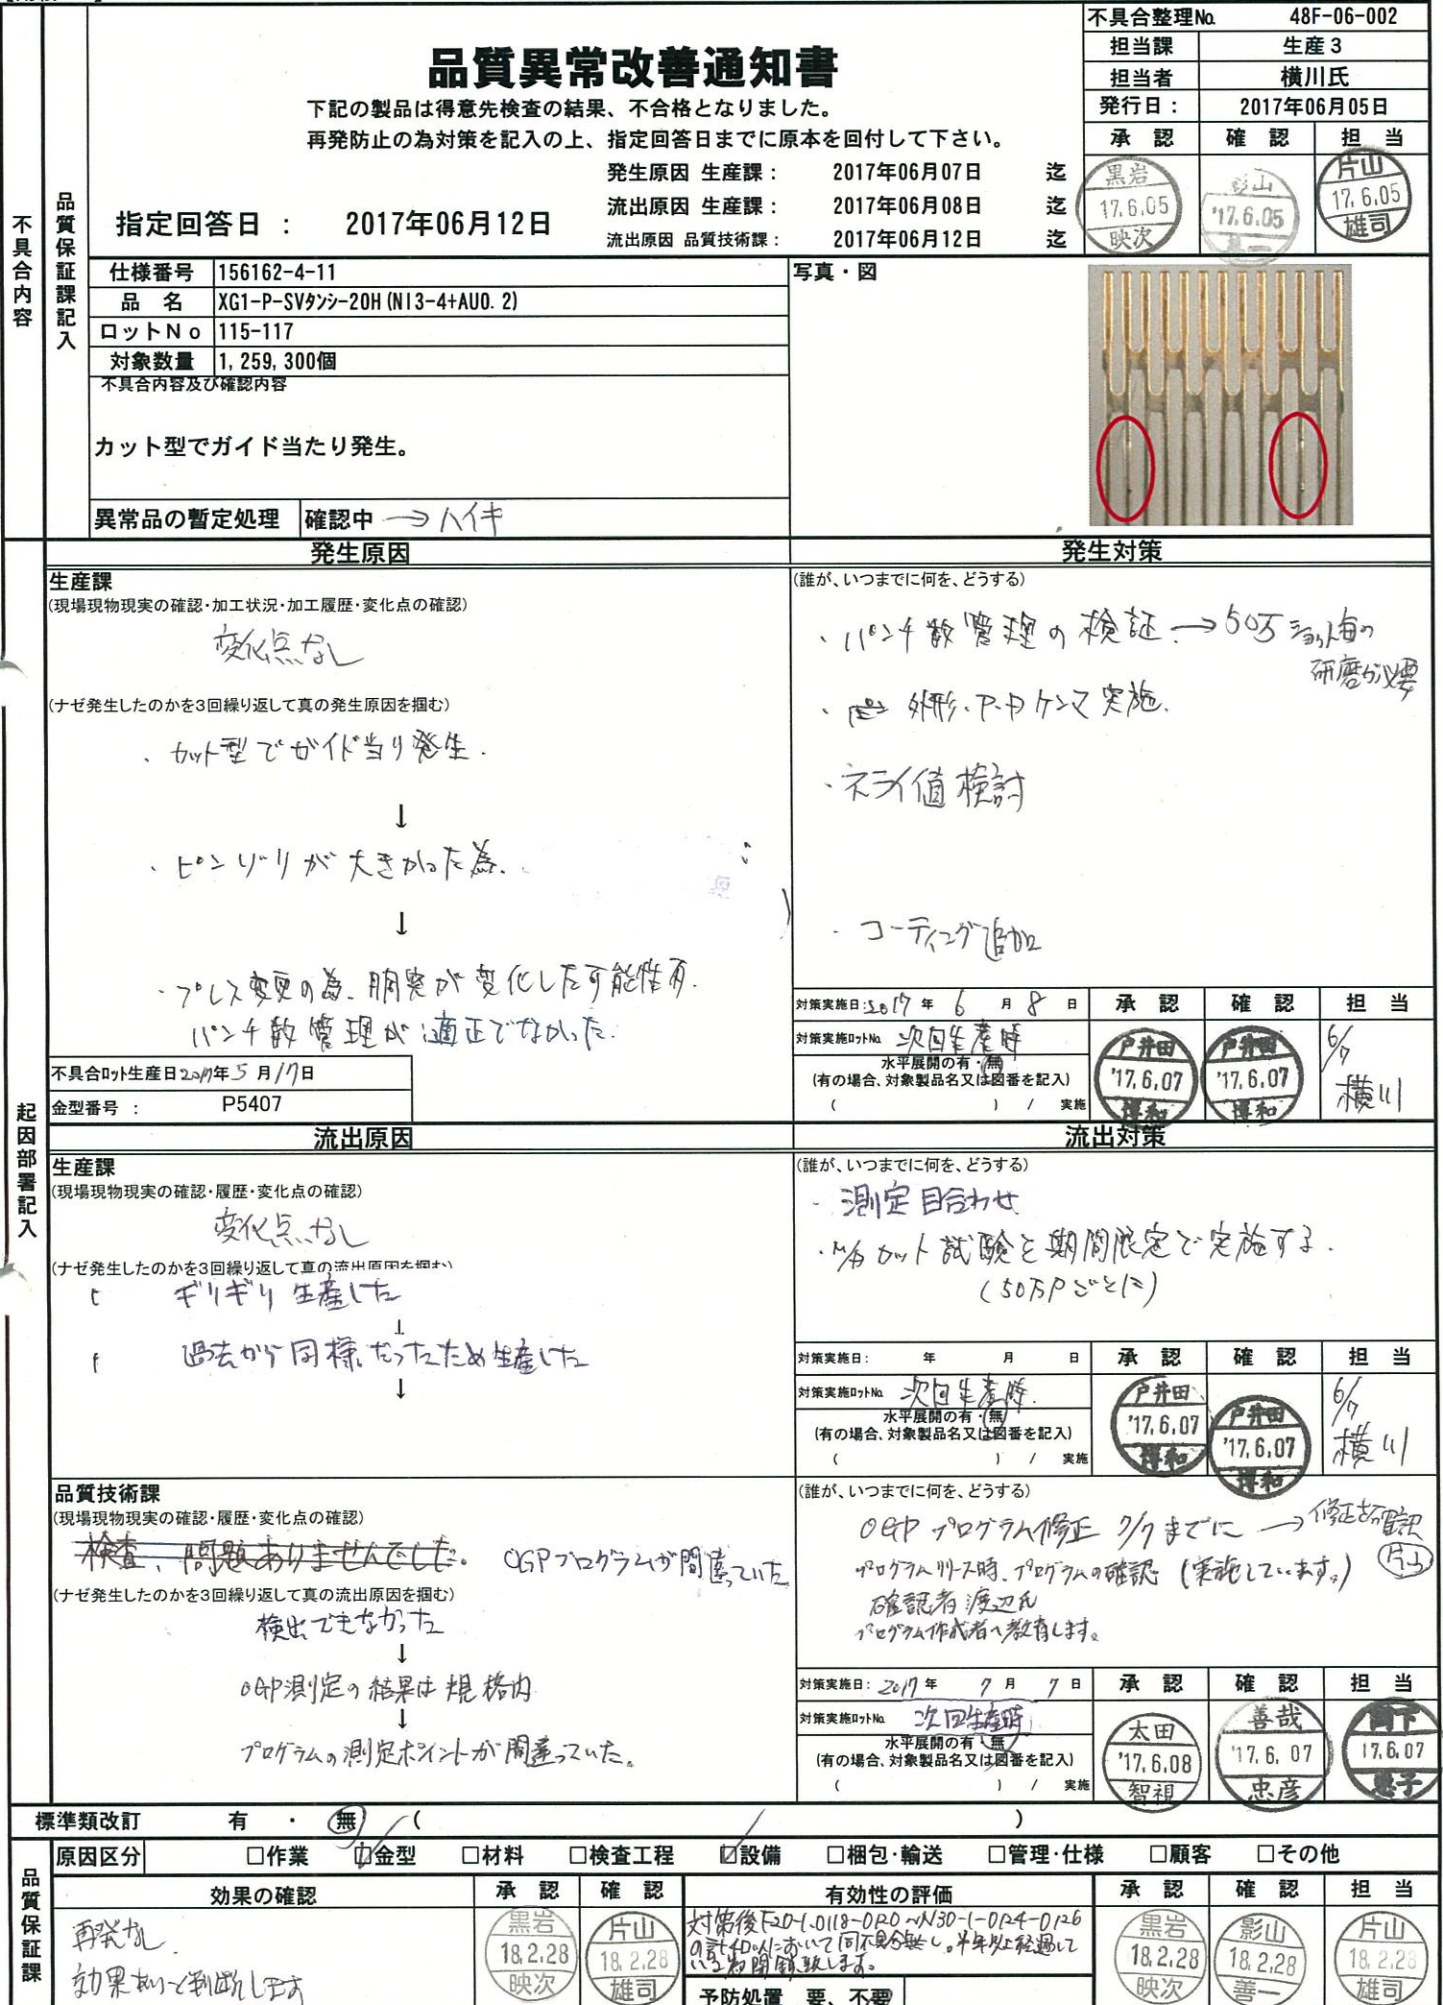 不具合整理No. 48F-06-002
担当課 生産3
担当者 横川氏
発行日： 2017年06月05日
承認 確認 担当
黒岩 17.6.05 映次
影山 '17.6.05 善一
片山 17.6.05 雄司
品質異常改善通知書
下記の製品は得意先検査の結果、不合格となりました。
再発防止の為対策を記入の上、指定回答日までに原本を回付して下さい。
発生原因 生産課： 2017年06月07日 迄
流出原因 生産課： 2017年06月08日 迄
流出原因 品質技術課： 2017年06月12日 迄
指定回答日： 2017年06月12日
不具合内容
品質保証課記入
仕様番号 156162-4-11
品名 XG1-P-SVタンシ-20H(NI3-4+AU0.2)
ロットNo 115-117
対象数量 1,259,300個
不具合内容及び確認内容
カット型でガイド当たり発生。
異常品の暫定処理 確認中 → ハイキ
写真・図
起因部署記入
発生原因
生産課
(現場現物現実の確認・加工状況・加工履歴・変化点の確認)
変化点なし
(ナゼ発生したのかを3回繰り返して真の発生原因を掴む)
・カット型でガイド当り発生.
↓
・ピンゾリが大きかった為.
↓
・プレス変更の為、胴突が変化した可能性有.
パンチ数管理が適正でなかった.
不具合ロット生産日2017年5月17日
金型番号： P5407
発生対策
(誰が、いつまでに何を、どうする)
・パンチ数管理の検証 → 50万ショット毎の
研磨が必要
外形・ア-カケンマ実施.
・ネライ値検討
・コーティング追加
対策実施日：2017年6月8日
対策実施ロットNo. 次回生産時
水平展開の有・無
(有の場合、対象製品名又は図番を記入)
( ) / 実施
承認 確認 担当
戸井田 '17.6.07 博和
戸井田 '17.6.07 博和
6/7 横川
流出原因
生産課
(現場現物現実の確認・履歴・変化点の確認)
変化点なし
(ナゼ発生したのかを3回繰り返して真の流出原因を掴む)
ギリギリ生産した
↓
過去から同様だったため生産した
↓
流出対策
(誰が、いつまでに何を、どうする)
・測定目合わせ
カット試験を期間限定で実施する.
(50万Pごとに)
対策実施日： 年 月 日
対策実施ロットNo. 次回生産時.
水平展開の有・無
(有の場合、対象製品名又は図番を記入)
( ) / 実施
承認 確認 担当
戸井田 '17.6.07 博和
戸井田 '17.6.07 博和
6/7 横川
品質技術課
(現場現物現実の確認・履歴・変化点の確認)
検査、問題ありませんでした。 OGPプログラムが間違っていた
(ナゼ発生したのかを3回繰り返して真の流出原因を掴む)
検出できなかった
↓
OGP測定の結果は規格内
↓
プログラムの測定ポイントが間違っていた。
(誰が、いつまでに何を、どうする)
OGPプログラム修正 7/7までに → 修正済確認
片山
プログラムリリース時、プログラムの確認(実施しています。)
確認者 渡辺氏
プログラム作成者へ教育します。
対策実施日：2017年7月7日
対策実施ロットNo. 次回生産時
水平展開の有・無
(有の場合、対象製品名又は図番を記入)
( ) / 実施
承認 確認 担当
太田 '17.6.08 智視
善哉 '17.6.07 忠彦
17.6.07
標準類改訂 有・無 ( )
品質保証課
原因区分 □作業 ☑金型 □材料 □検査工程 ☑設備 □梱包・輸送 □管理・仕様 □顧客 □その他
効果の確認 承認 確認 有効性の評価 承認 確認 担当
再発なし.
効果ありと判断します
黒岩 18.2.28 映次
片山 18.2.28 雄司
対策後F20-1-0118-0120~N30-1-0124-0126
の計40Nにおいて同不具合無し。半年以上経過して
いる為閉鎖致します。
予防処置 要、不要
黒岩 18.2.28 映次
影山 18.2.28 善一
片山 18.2.28 雄司